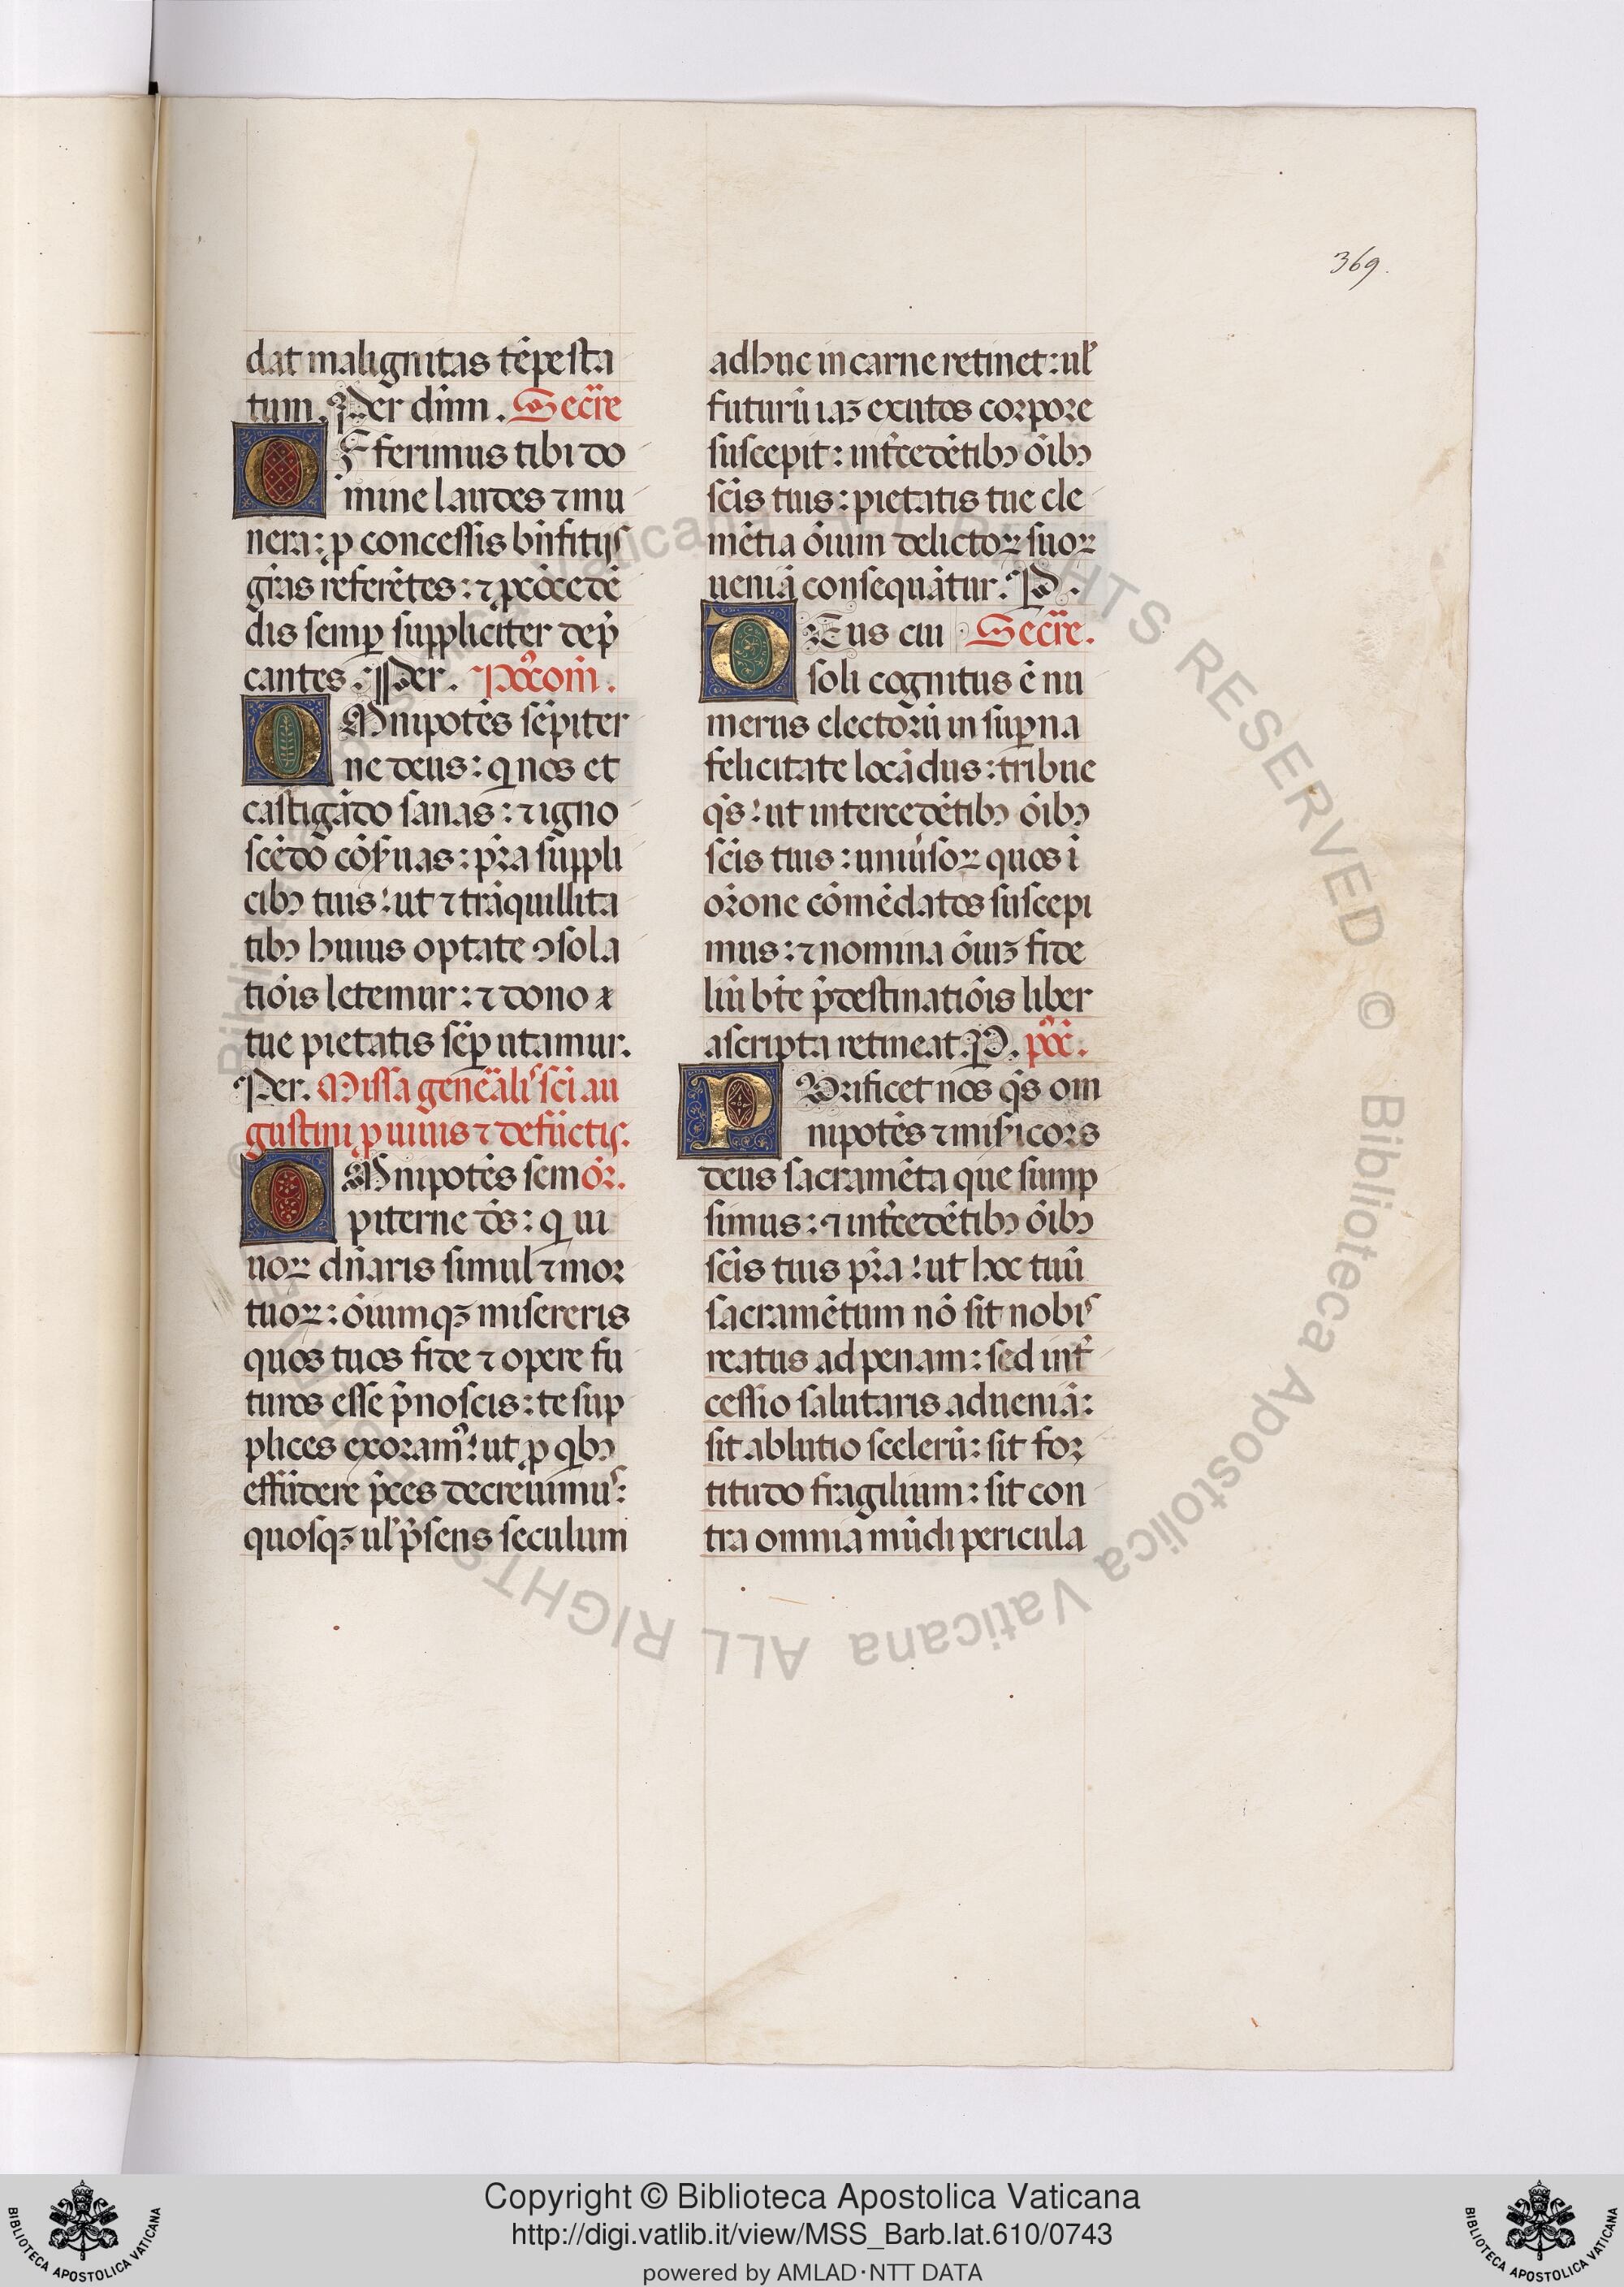 369.
dat malignitas tēpesta
tum. Per dn̄m. Secr̄e
OFferimus tibi do
mine laudes ⁊ mu
nera: ꝓ concessis bn̄fitijs
gr̄as referētes: ⁊ ꝓ ꝯcedē
dis semꝑ suppliciter dep̄
cantes. Per. Poꝯ̄com̄.
OMnipotēs sēpiter
ne deus: qui nos et
castigādo sanas: ⁊ igno
scēdō cōẜuas: pr̄a suppli
cibꝫ tuis: ut ⁊ trāquillita
tibꝫ huius optate ꝯsola
tiōis letemur: ⁊ dono
tue pietatis sēꝑ utamur.
Per. Missa gener̄alis sc̄i au
gustini ꝓ uiuis ⁊ defūctis.
OMnipotēs sem ōr.
piterne ds̄: qui ui
uoꝝ dn̄aris simul ⁊ mor
tuoꝝ: ōiumqꝫ misereris
quos tuos fide ⁊ opere fu
turos esse p̄noscis: te sup
plices exoramꝰ: ut ꝓ qbꝫ
effūdere p̄ces decreuimus:
quosqꝫ ul̓ p̄sens seculum
adhuc in carne retinet: ul̓
futurū iaꝫ exutos corpore
suscepit: int̄cedētibꝫ ōibꝫ
sc̄is tuis: pietatis tue cle
mētia ōium delictoꝝ suoꝝ
ueniā consequātur. P.
DEus cui Secr̄e.
soli cognitus ē nu
merus electorū in suꝑna
felicitate locādus: tribue
qs̄: ut intercedētibꝫ ōibꝫ
sc̄is tuis: uniūsoꝝ quos ī
orōne cōmēdatos suscepi
mus: ⁊ nomina ōiuꝫ fide
liū bt̄e p̄destinatiōis liber
ascripta retineat. P. poꝯ̄.
PUrificet nos qs̄ om
nipotēs ⁊ miẜicors
deus sacramēta que sump
simus: ⁊ int̄cedētibꝫ ōibꝫ
sc̄is tuis pr̄a: ut hoc tuū
sacramētum nō sit nobis
reatus ad penam: sed int̄
cessio salutaris ad ueniā:
sit ablutio scelerū: sit for
titudo fragilium: sit con
tra omnia mūdi pericula
© Biblioteca Apostolica Vaticana ALL RIGHTS RESERVED © Biblioteca Apostolica Vaticana ALL RIGHTS RESERVED
Copyright © Biblioteca Apostolica Vaticana
http://digi.vatlib.it/view/MSS_Barb.lat.610/0743
powered by AMLAD·NTT DATA
BIBLIOTECA APOSTOLICA VATICANA
BIBLIOTECA APOSTOLICA VATICANA